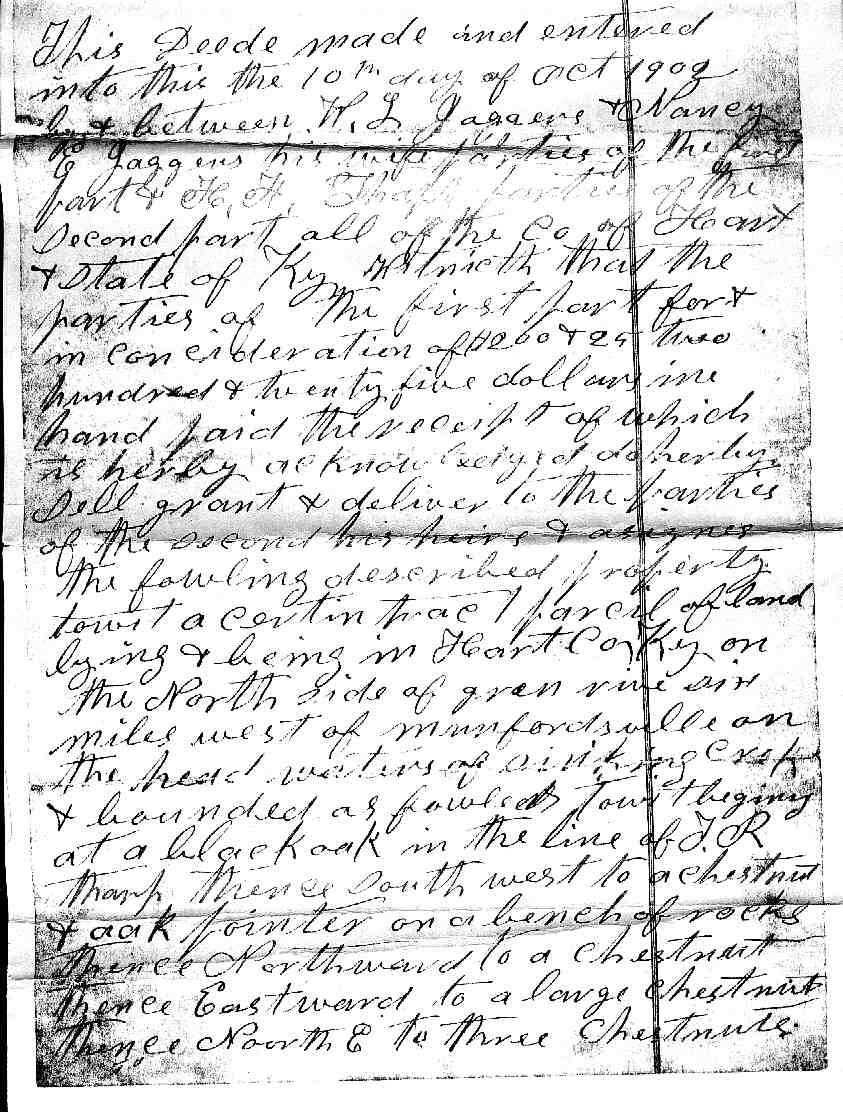 This Deede made and entered
into this the 10th day of oct 1902
by & between H. L. Jaggers & Nancy
E Jaggers his wife parties of the first
part & H. H. Tharp parties of the
second part all of the Co of Hart
& State of Ky that the
parties of the first part for &
in concideration of $200 & 25 two
hundred & twenty five dollars ine
hand paid the receipt of which
is herby acknowledged do herby
sell grant & deliver to the parties
of the second his heirs & asignes
the fowling described property
towit a certin tract parcil of land
lying & being in Hart Co Ky on
the North side of gren rive six
miles west of munfordsville on
the head waters of sinking crek
& bounded as towit begining
at a black oak in the line of J. R
tharp thence south west to a chestnut
& oak pointer on a bench of rocks
thence Northward to a chestnutt
thence Eastward to a large chestnut
thence Noorth E to three chestnuts